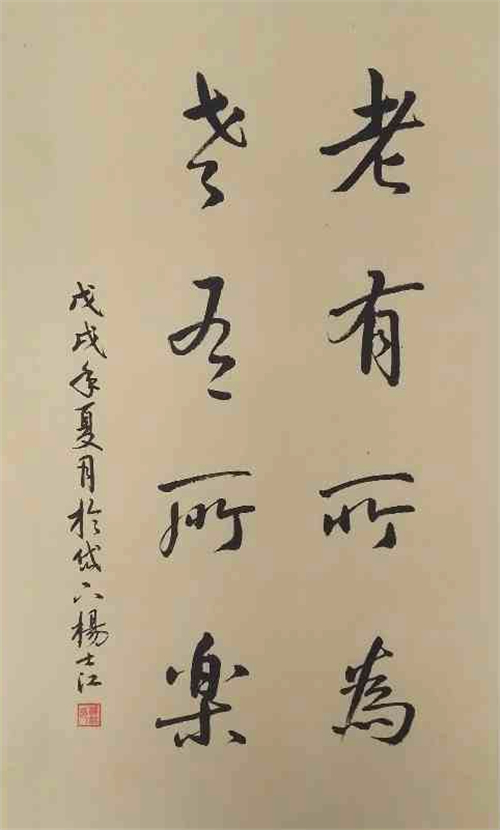 老有所為
老有所樂
戊戌年夏月於岱下楊士江